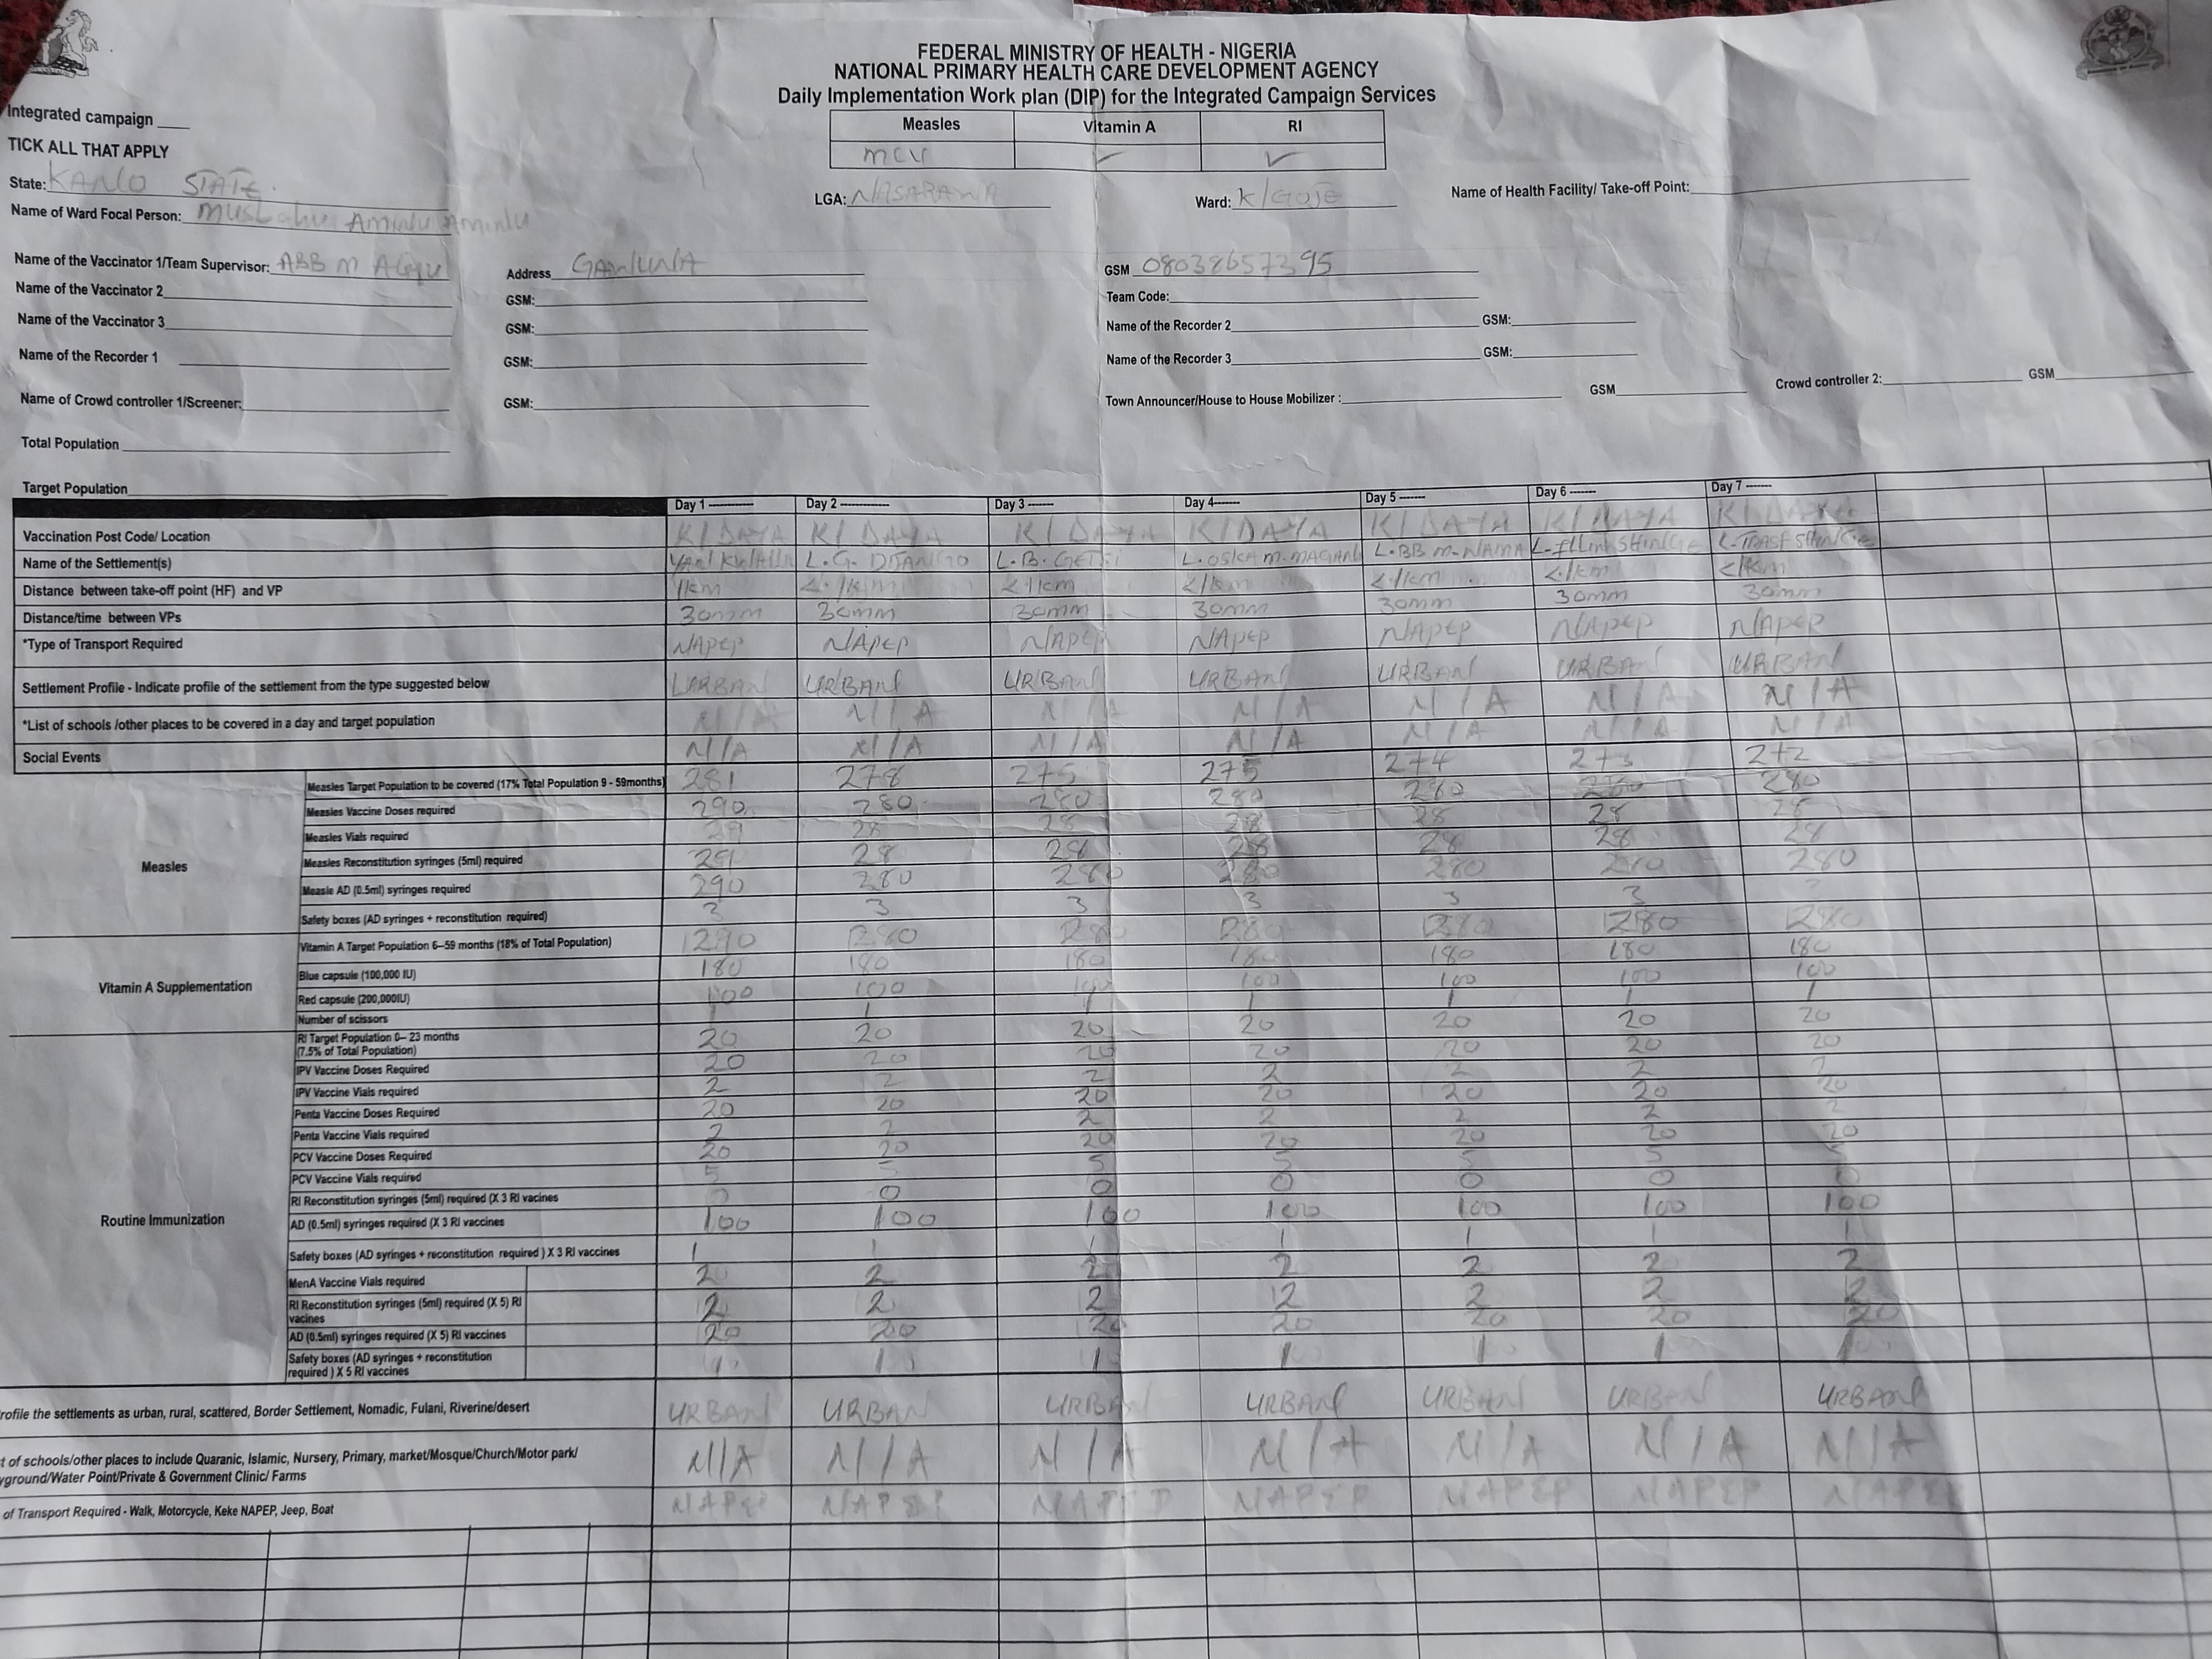 FEDERAL MINISTRY OF HEALTH - NIGERIA
NATIONAL PRIMARY HEALTH CARE DEVELOPMENT AGENCY
Daily Implementation Work plan (DIP) for the Integrated Campaign Services
Integrated campaign ___
TICK ALL THAT APPLY
Measles Vitamin A RI
mcv ✓ ✓
State: KANO STATE.
LGA: NASARAWA Ward: K/GOJE Name of Health Facility/ Take-off Point:
Name of Ward Focal Person: Aminu Aminu
Name of the Vaccinator 1/Team Supervisor: ABB M Aliyu Address GAWUNA GSM 08038657395
Name of the Vaccinator 2 GSM: Team Code:
Name of the Vaccinator 3 GSM: Name of the Recorder 2 GSM:
Name of the Recorder 1 GSM: Name of the Recorder 3 GSM:
Name of Crowd controller 1/Screener: GSM: Town Announcer/House to House Mobilizer : GSM Crowd controller 2: GSM
Total Population
Target Population
Day 1 Day 2 Day 3 Day 4 Day 5 Day 6 Day 7
Vaccination Post Code/ Location K/DAYA K/DAYA K/DAYA K/DAYA K/DAYA K/DAYA K/DAYA
Name of the Settlement(s) L.G. L.B. GETSI L. L.BB M. NAMA
Distance between take-off point (HF) and VP 1km <1km <1km <1km <1km <1km <1km
Distance/time between VPs 30mm 30mm 30mm 30mm 30mm 30mm 30mm
*Type of Transport Required NAPEP NAPEP NAPEP NAPEP NAPEP NAPEP NAPEP
Settlement Profile - Indicate profile of the settlement from the type suggested below URBAN URBAN URBAN URBAN URBAN URBAN URBAN
*List of schools /other places to be covered in a day and target population N/A N/A N/A N/A N/A N/A N/A
Social Events N/A N/A N/A N/A N/A N/A N/A
Measles
Measles Target Population to be covered (17% Total Population 9 - 59months) 281 278 275 275 274 273 272
Measles Vaccine Doses required 290 280 280 280 280 280
Measles Vials required 29 28 28 28 28 28 28
Measles Reconstitution syringes (5ml) required 29 28 28 28 28 28 28
Measle AD (0.5ml) syringes required 290 280 280 280 280 280 280
Safety boxes (AD syringes + reconstitution required) 3 3 3 3 3 3
Vitamin A Supplementation
Vitamin A Target Population 6–59 months (18% of Total Population) 290 280 280 280 280 280 280
Blue capsule (100,000 IU) 180 180 180 180 180 180 180
Red capsule (200,000IU) 100 100 100 100 100 100 100
Number of scissors 1 1 1 1 1 1 1
Routine Immunization
RI Target Population 0– 23 months
(7.5% of Total Population) 20 20 20 20 20 20 20
IPV Vaccine Doses Required 20 20 20 20 20 20 20
IPV Vaccine Vials required 2 2 2 2 2 2 2
Penta Vaccine Doses Required 20 20 20 20 20 20 20
Penta Vaccine Vials required 2 2 2 2 2 2 2
PCV Vaccine Doses Required 20 20 20 20 20 20 20
PCV Vaccine Vials required 5 5 5 5 5 5 5
RI Reconstitution syringes (5ml) required (X 3 RI vacines 0 0 0 0 0 0 0
AD (0.5ml) syringes required (X 3 RI vaccines 100 100 100 100 100 100 100
Safety boxes (AD syringes + reconstitution required ) X 3 RI vaccines 1 1 1 1 1 1 1
MenA Vaccine Vials required 2 2 2 2 2 2 2
RI Reconstitution syringes (5ml) required (X 5) RI
vacines 2 2 2 2 2 2 2
AD (0.5ml) syringes required (X 5) RI vaccines 20 20 20 20 20 20 20
Safety boxes (AD syringes + reconstitution
required ) X 5 RI vaccines 1 1 1 1 1 1 1
rofile the settlements as urban, rural, scattered, Border Settlement, Nomadic, Fulani, Riverine/desert URBAN URBAN URBAN URBAN URBAN URBAN URBAN
t of schools/other places to include Quaranic, Islamic, Nursery, Primary, market/Mosque/Church/Motor park/
yground/Water Point/Private & Government Clinic/ Farms N/A N/A N/A N/A N/A N/A N/A
of Transport Required - Walk, Motorcycle, Keke NAPEP, Jeep, Boat NAPEP NAPEP NAPEP NAPEP NAPEP NAPEP NAPEP